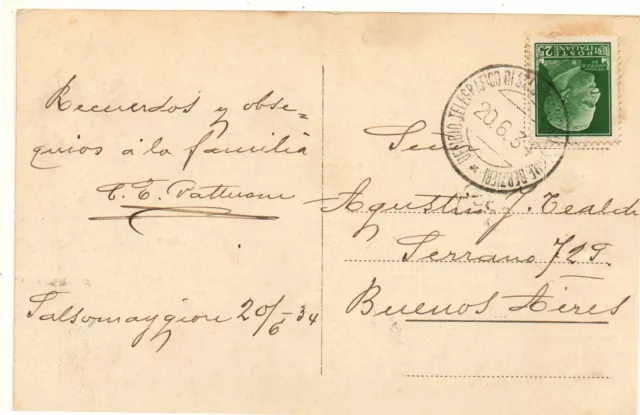 Recuerdos y obse-
quios á la familia
C. E. Pattusone
Salsomaggiore 20/6 34
Señ
Agustin J. Tealdi
Serrano 725.
Buenos Aires
POSTE
ITALIANE
CENT 25
UFFICIO TELEGRAFICO DI
TERME BERZIERI
20.6.3